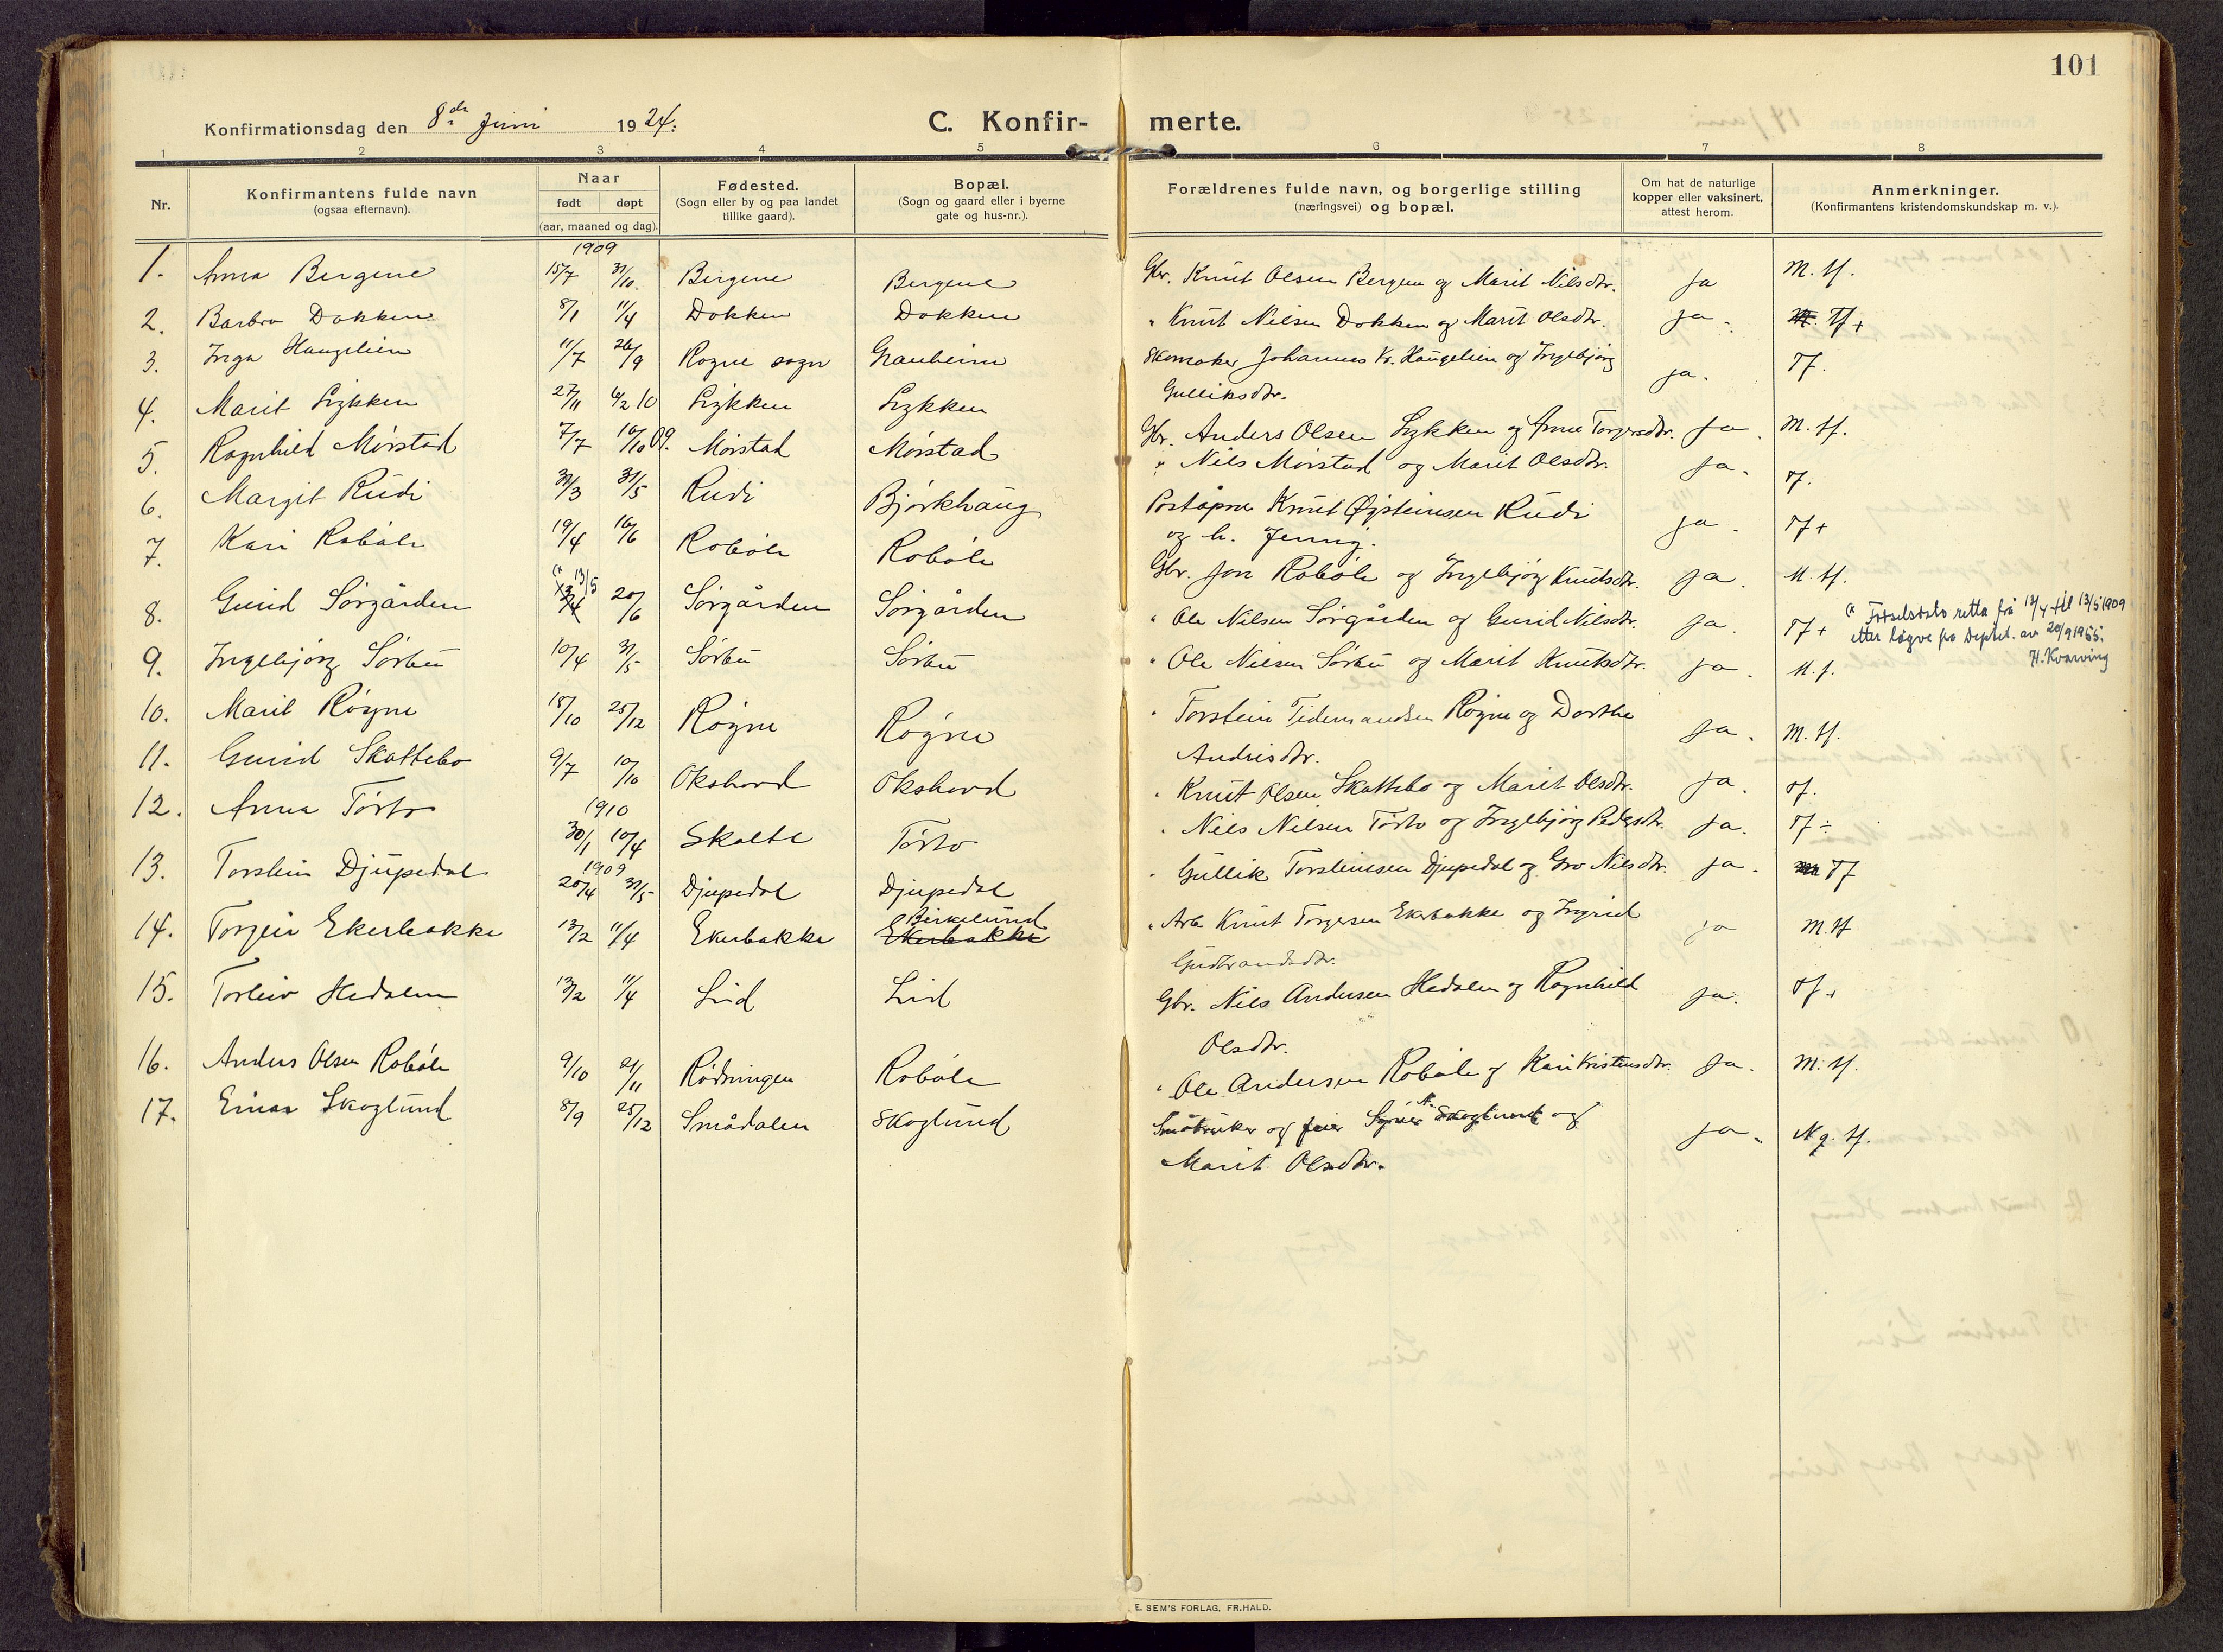 101
Konfirmationsdag den 8de Juni 1924.
C. Konfir- merte.
1 2 3 4 5 6 7 8
Nr.
Konfirmantens fulde navn
(ogsaa efternavn).
Naar
født døpt
(aar, maaned og dag).
Fødested.
(Sogn eller by og paa landet
tillike gaard).
Bopæl.
(Sogn og gaard eller i byerne
gate og hus-nr.).
Forældrenes fulde navn, og borgerlige stilling
(næringsvei) og bopæl.
Om hat de naturlige
kopper eller vaksinert,
attest herom.
Anmerkninger.
(Konfirmantens kristendomskundskap m. v.).
1909
1. Anna Bergene 15/7 31/10. Bergene Bergene Gbr. Knut Olsen Bergene og Marit Nilsdtr. Ja M. tf.
2. Barbro Dokken 8/1 11/4 Dokken Dokken " Knut Nilsen Dokken og Marit Olsdtr. Ja. Tf+
3. Inga Haugelien 11/7 26/9 Rogne sogn Granheim Skomaker Johannes Kr. Haugelien og Ingebjørg
Gulliksdtr. ja. Tf.
4. Marit Lykken 27/11 6/2 10 Lykken Lykken Gbr. Anders Olsen Lykken og Anne Torgersdtr. Ja. M. tf.
5. Ragnhild Mørstad 7/7 10/10 09. Mørstad Mørstad " Nils Mørstad og Marit Olsdtr. Ja. Tf.
6. Margit Rudi 30/3 31/5 Rudi Bjørkhaug Poståpner Knut Øisteinsen Rudi
og h. Jenny. ja. Tf+
7. Kari Robøle 19/4 16/6 Robøle Robøle Gbr. Jon Robøle og Ingebjørg Knutsdtr. Ja. M. tf.
8. Gurid Sørgården (x 13/5 13/4 20/6 Sørgården Sørgården " Ole Nilsen Sørgården og Gurid Nilsdtr. Ja. Tf+
(x Fødselsdato retta frå 13/4 til 13/5 1909
etter løyve fra Deptet. av 20/9 1955.
H. Kvarving
9. Ingebjørg Sørbu 10/4 31/5 Sørbu Sørbu " Ole Nilsen Sørbu og Marit Knutsdtr. Ja. M. f.
10. Marit Rogne 18/10 25/12 Rogne Rogne " Torstein Tidemandsen Rogne og Dorthe
Andrisdtr. Ja. M. tf.
11. Gurid Skattebo 9/7 10/10 Okshovd Okshovd " Knut Olsen Skattebo og Marit Olsdtr. Ja. Tf.
1910
12. Anna Førto 30/1 10/4 Skolte Førto " Nils Nilsen Førto og Ingebjørg Pedersdtr. Ja. Tf÷
1909
13. Torstein Djupedal 20/4 31/5 Djupedal Djupedal " Gullik Torsteinsen Djupedal og Gro Nilsdtr. Ja. Tf
14. Torgeir Ekerbakke 13/2 11/4 Ekerbakke Birkelund Ekerbakke " Arb. Knut Torgersen Ekerbakke og Ingrid
Gudbrandsdtr. ja M. tf
15. Torleiv Hedalen 13/2 11/4 Lid Lid Gbr. Nils Andersen Hedalen og Ragnhild
Olsdtr. Ja. Tf+
16. Anders Olsen Robøle 9/10 21/11 Rødningen Robøle " Ole Andersen Robøle og Kari Kristensdtr. Ja. M. tf.
17. Einar Skoglund 8/9 25/12 Smådalen Skoglund Småbruker og feier N. Skoglund og
Marit Olsdtr. Ja. Ng. tf.
E. SEM'S FORLAG, FR.HALD.